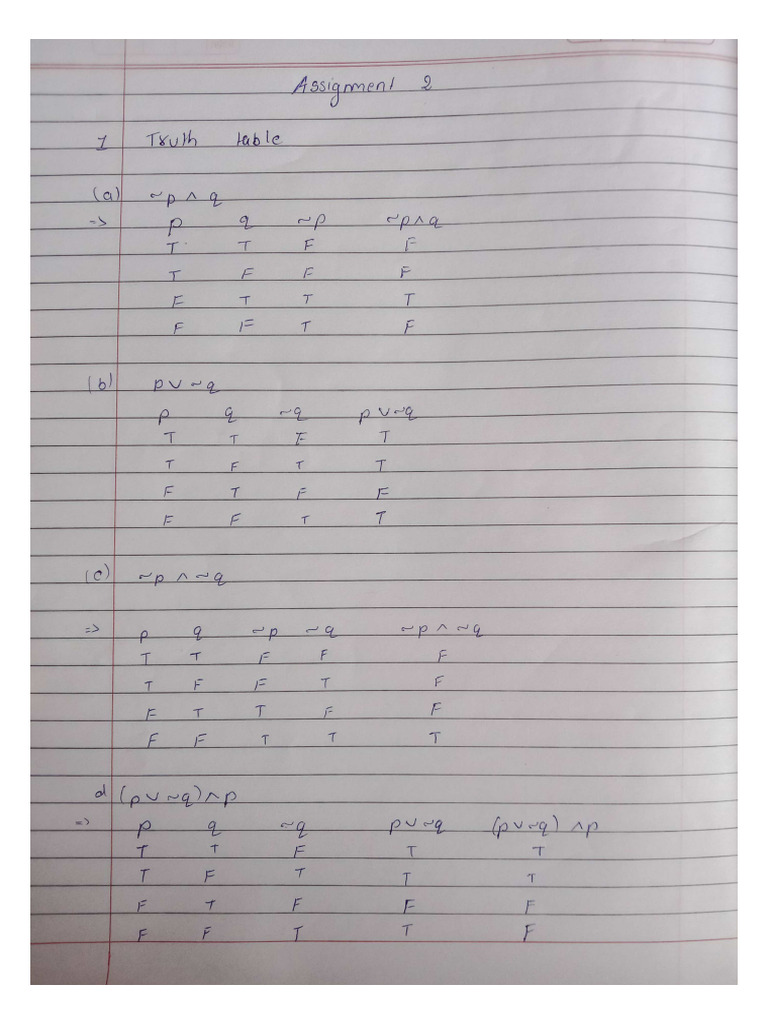 Assignment 2
1 Truth table
(a) ~p ∧ q
=> p q ~p ~p∧q
T T F F
T F F F
F T T T
F F T F
(b) p∨ ~q
p q ~q p∨~q
T T F T
T F T T
F T F F
F F T T
(c) ~p ∧ ~q
=> p q ~p ~q ~p ∧ ~q
T T F F F
T F F T F
F T T F F
F F T T T
d (p∨ ~q)∧p
=> p q ~q p∨~q (p∨~q) ∧p
T T F T T
T F T T T
F T F F F
F F T T F